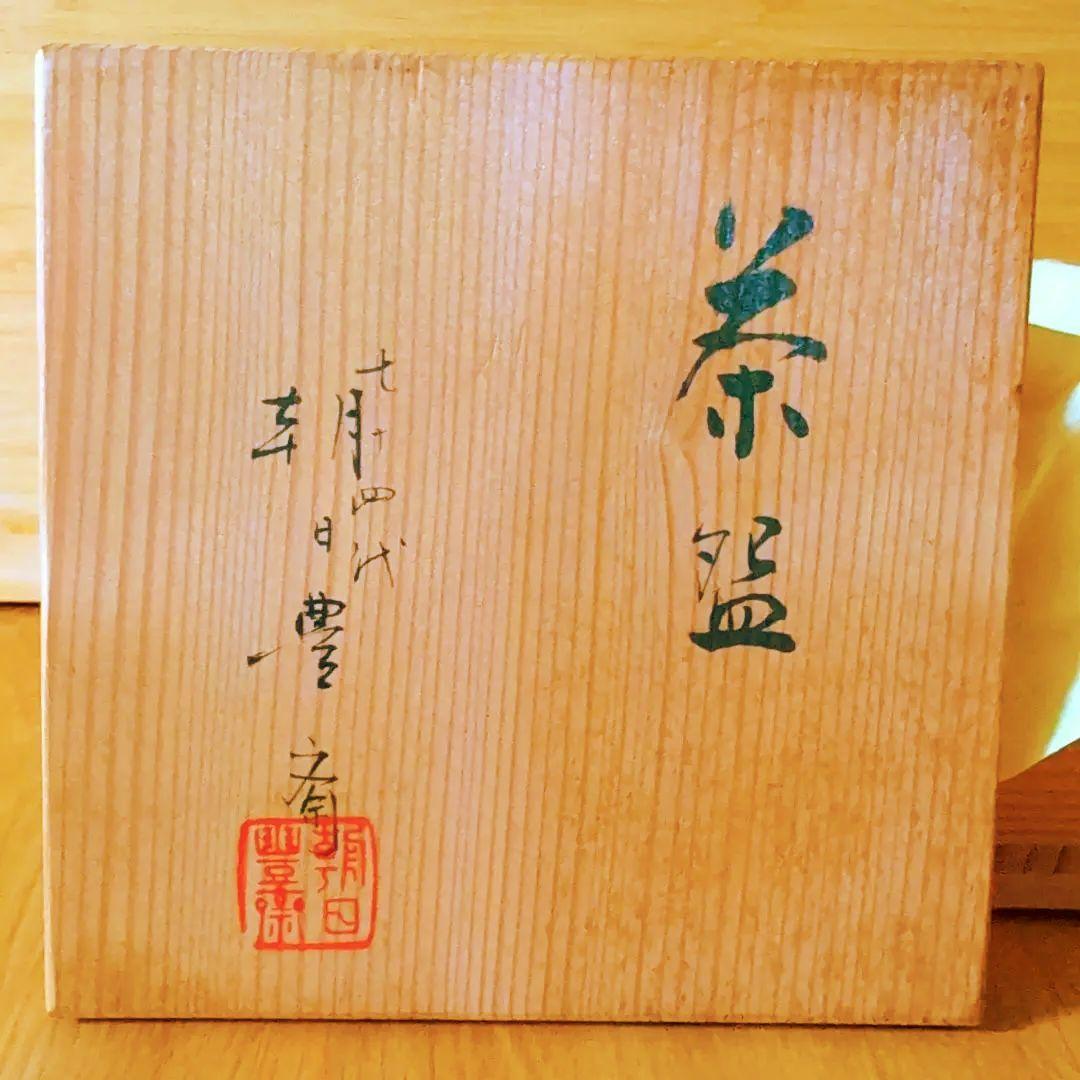 茶盌
十四代
朝日豊斎
朝日
豊斎